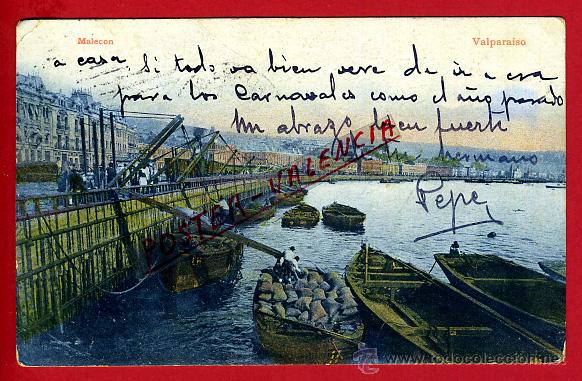 Malecon
Valparaiso
a casa Si todo va bien vere de ir a esa
para los Carnavales como el año pasado
Un abrazo bien fuerte
de tu hermano
Pepe
POSTER-VALENCIA
todocoleccion.net